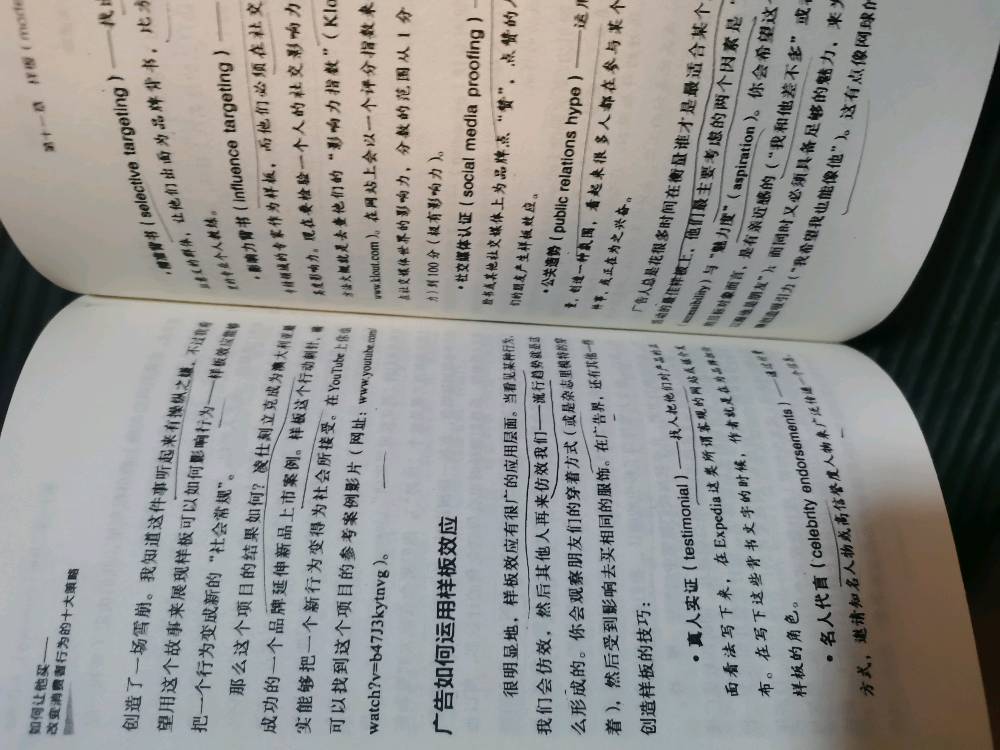 如何让他买——
改变消费者行为的十大策略
创造了一场雪崩。我知道这件事听起来有操纵之嫌，不过我希
望用这个故事来展现样板可以如何影响行为——样板效应能够
把一个行为变成新的“社会常规”。
那么这个项目的结果如何？凌仕刻立克成为澳大利亚最
成功的一个品牌延伸新品上市案例。样板这个行动刺针，确
实能够把一个新行为变得为社会所接受。在YouTube上你也
可以找到这个项目的参考案例影片（网址：www.youtube.com/
watch?v=b47J3kytnvg）。
广告如何运用样板效应
很明显地，样板效应有很广的应用层面。当看见某种行为，
我们会仿效，然后其他人再来仿效我们——流行趋势就是这
么形成的。你会观察朋友们的穿着方式（或是杂志里模特的穿
着），然后受到影响去买相同的服饰。在广告界，还有其他一些
创造样板的技巧：
• 真人实证（testimonial）——找人把他们对产品的正
面看法写下来，在Expedia这类所谓客观的网站或媒介发
布。在写下这些背书文字的时候，作者就是在为品牌扮演
样板的角色。
• 名人代言（celebrity endorsements）——通过付费
方式，邀请知名人物或高信誉度人物来广泛传递一个信息。
第十一章 样板（mode
背书（selective targeting）——找出
的群体，让他们出面为品牌背书，比方
个人教练。
• 影响力背书（influence targeting）——
领域的专家作为样板，而他们必须在社交
影响力。现在要检验一个人的社交影响力
方法大概就是去查他们的“影响力指数”（Klo
www.klout.com）。在网站上会以一个评分指数来
点社交媒体世界的影响力，分数的范围从1分
力）到100分（极有影响力）。
• 社交媒体认证（social media proofing）——
脸书或其他社交媒体上为品牌点“赞”，点赞的人
们的朋友产生样板效应。
• 公关造势（public relations hype）——运用
创造一种氛围，看起来很多人都在参与某个
件事，或正在为之兴奋。
广告人总是花很多时间在衡量谁才是最适合某个
活动的最佳样板上，他们最主要考虑的两个因素是“
）与“魅力度”（aspiration）。你会希望这
目标对象而言，是有亲近感的（“我和他差不多”或者
），而同时又必须具备足够的魅力，来为
吸引力（“我希望我也能像他”）。这有点像网球的